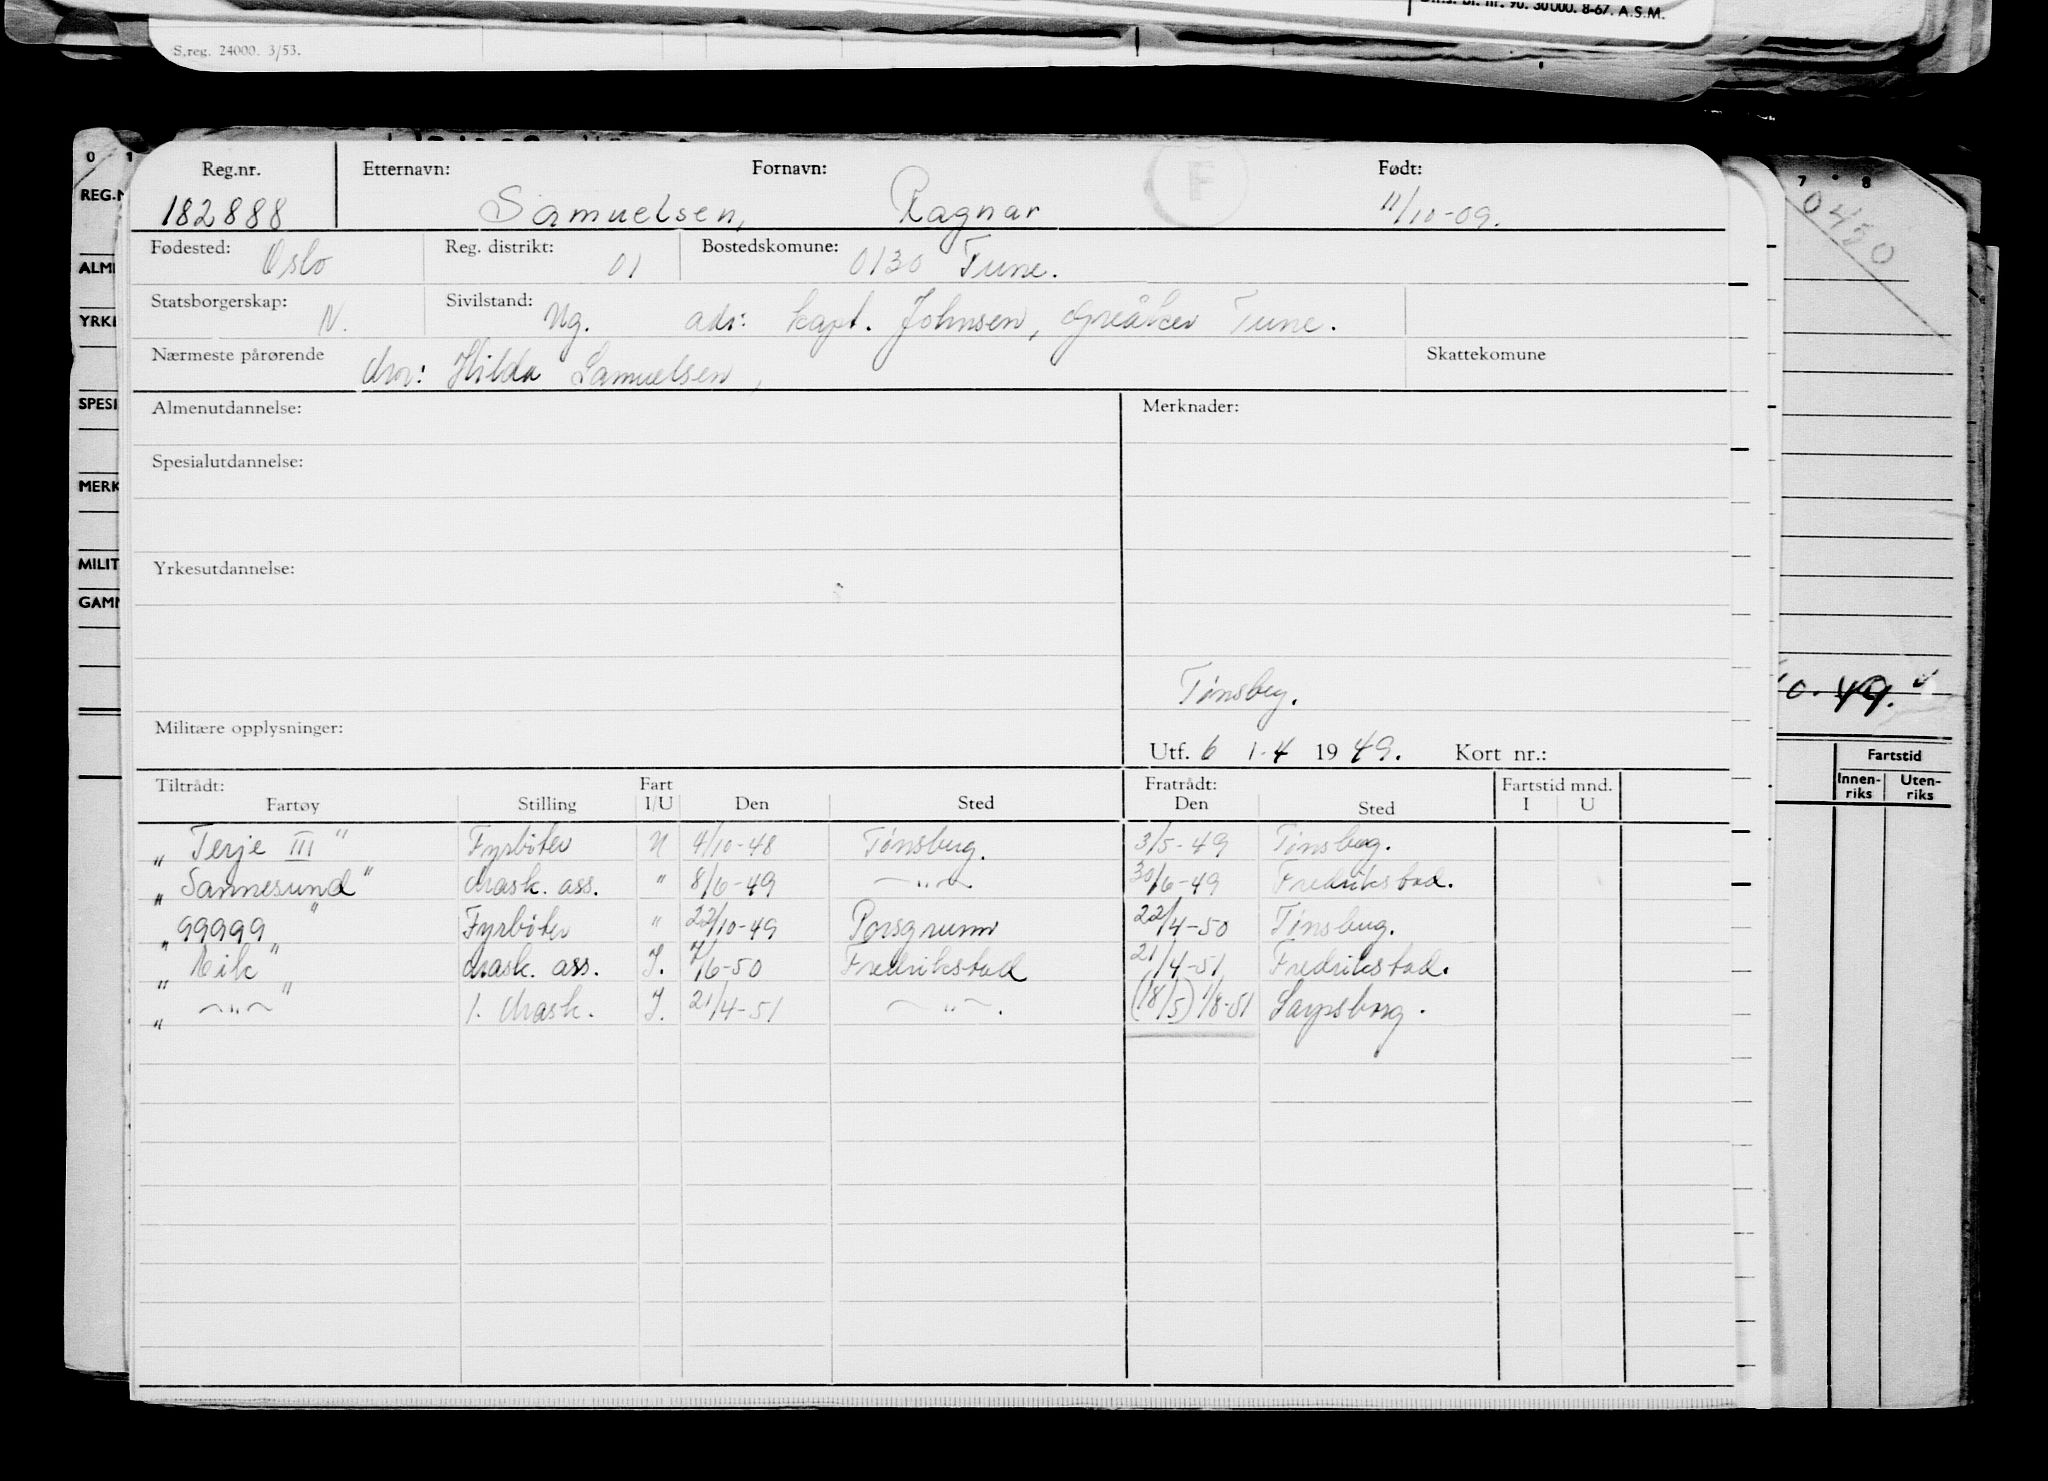 Dirs. bl. nr. 90. 30 000. 8-67. A.S.M.
S.reg. 24000. 3/53.
0 1
7 8
REG.N
0420
ALM
YRKE
SPESI
MERK
MILIT
GAMM
Reg.nr. Etternavn: Fornavn: F Født:
182888 Samuelsen, Ragnar 11/10-09.
Fødested: Oslo Reg. distrikt: 01 Bostedskomune: 0130 Tune.
Statsborgerskap: N. Sivilstand: Ug. adr: kapt. Johnsen, Greåker Tune.
Nærmeste pårørende Mor: Hilda Samuelsen, Skattekomune
Almenutdannelse: Merknader:
Spesialutdannelse:
Yrkesutdannelse:
Tønsberg.
Militære opplysninger: Utf. 6 1-4 1949. Kort nr.:
Tiltrådt: Fart Fratrådt: Fartstid mnd.
Fartøy Stilling I/U Den Sted Den Sted I U
„ Terje III " Fyrbøter U 4/10-48 Tønsberg. 3/5-49 Tønsberg.
„ Sannesund " Mask. ass. " 8/6-49 —"— 30/6-49 Fredrikstad.
„ 99999 " Fyrbøter " 22/10-49 Porsgrunn 22/4-50 Tønsberg.
„ Eik " Mask. ass. I. 7/6-50 Fredrikstad 21/4-51 Fredrikstad.
„ —"— " 1. Mask. I. 21/4-51 —"—. (18/5) 1/8-51 Sarpsborg.
10. 49.
Fartstid
Innen-riks Uten-riks